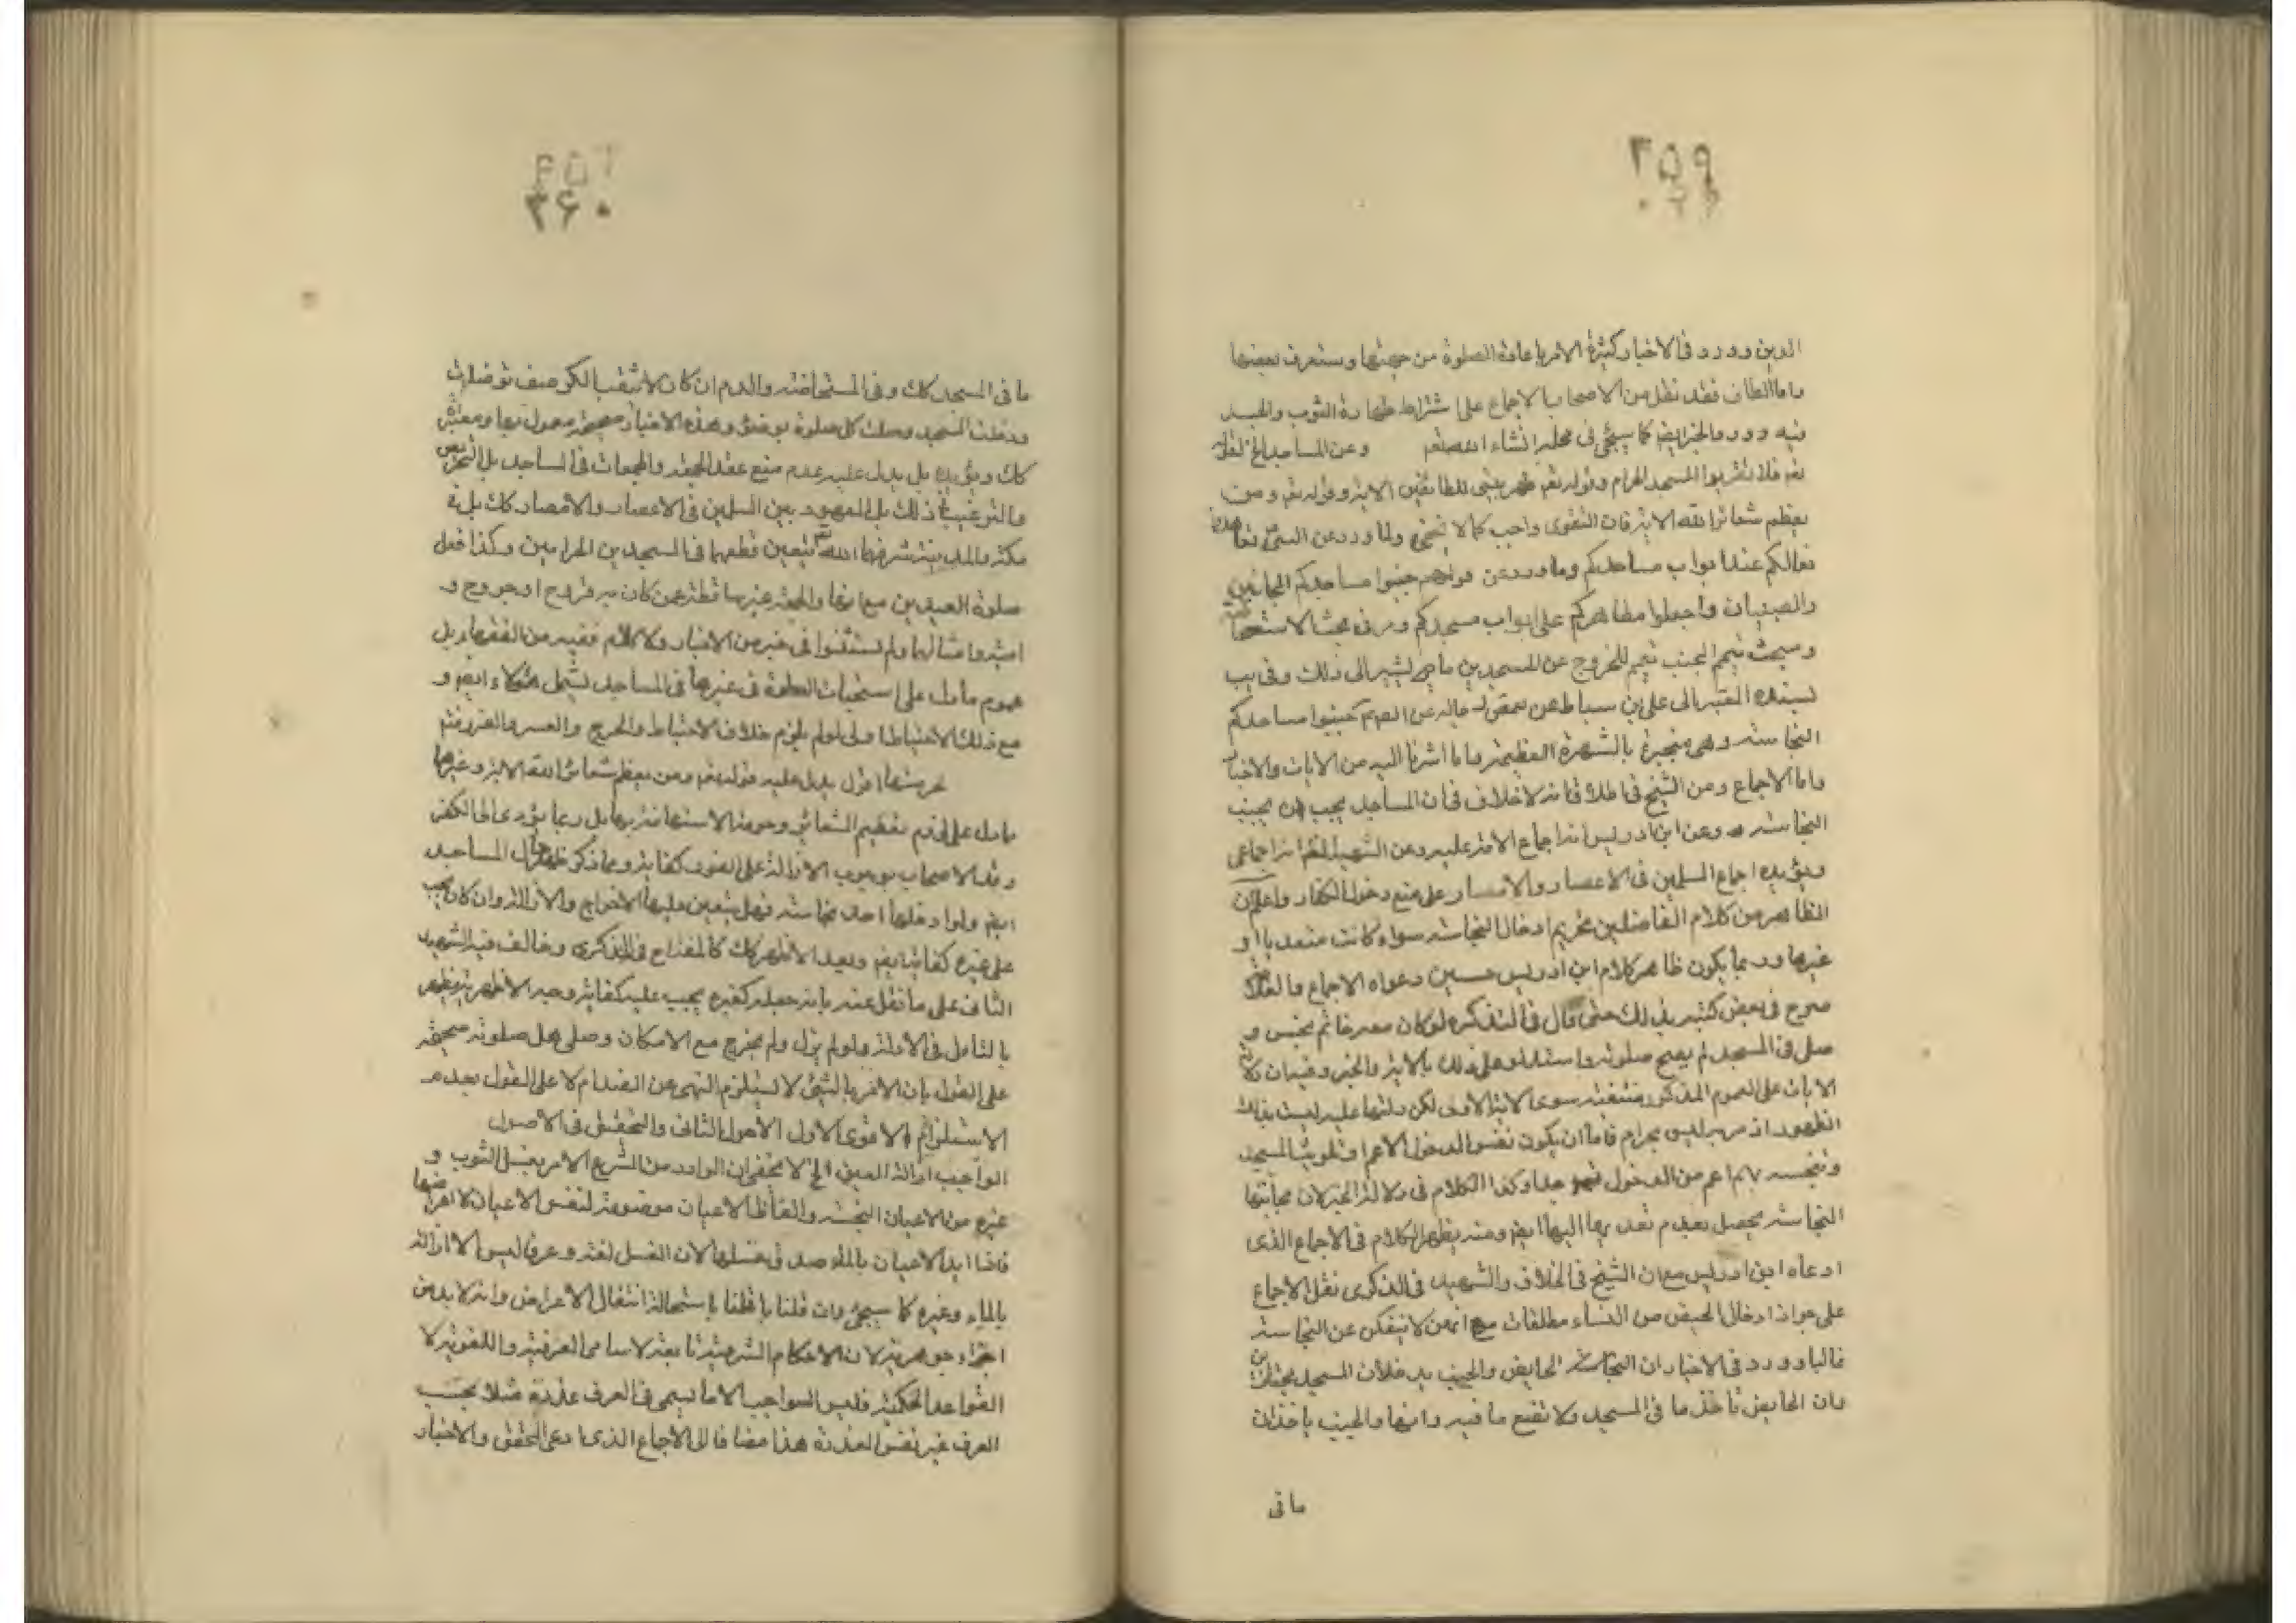 ۳۵۹
الدين وورد في الاخبار كثيرة الامر باعادة الصلوة من جهتها وستعرف بعضها
واما الطاف فقد نقل من الاصحاب الاجماع على اشتراط طهارة الثوب والجسد
فيه وورد الخبر ايضا كما سيجئ في محله انشاء الله تعم وعن المساجد الخ لقوله
تعم فلا تقربوا المسجد الحرام وقوله تعم طهر بيتي للطائفين الاية وقوله تعم ومن
يعظم شعائر الله الاية فان التقوى واجب كما لا يخفى ولما ورد عن النبي ص تعاهدوا
نعالكم عند ابواب مساجدكم وما ورد عن جنبوا مساجدكم المجانين
والصبيان واجعلوا مطاهركم على ابواب مسجدكم ومر في بحث الاستحاضة
ومبحث تيمم الجنب تيمم للخروج عن المسجدين ما يشير الى ذلك وفي يب
بسنده المعتبر الى علي بن سباط عن بعض رجاله عن الصم جنبوا مساجدكم
النجاسة وهي منجبرة بالشهرة العظيمة وما اشرنا اليه من الايات والاخبار
واما الاجماع ومن الشيخ في اطلاقاته لا خلاف في ان المساجد يجب ان يجنب
النجاسة وعن ابن ادريس انه اجماع الامة عليه وعن الشهيد انه اجماعي
ويؤيده اجماع المسلمين في الاعصار والامصار على منع دخول الكفار واعلم ان
الظاهر من كلام الفاضلين تحريم ادخال النجاسة سواء كانت متعدية او
غيرها وربما يكون ظاهر كلام ابن ادريس حسين دعواه الاجماع والعلامة
صرح في بعض كتبه بذلك حتى قال في التذكرة لو كان معه خاتم نجس و
صلى في المسجد لم يصح صلوته واستدلوا على ذلك بالاية والخبر وفيه ان دلالة
الايات على العموم المذكور منتفية سوى الاية الاولى لكن دلتها عليه ليست بذلك
الظهور اذ قربه ليس بحرام فاما ان يكون نفس الدخول الاعم او تلويث المسجد
وتنجسه اعم من الدخول جدا وكذا الكلام في دلالة الخبر لان مجانبتها
النجاسة يحصل بعدم تعديها اليها ايضا ومنه يظهر الكلام في الاجماع الذي
ادعاه ابن ادريس مع ان الشيخ في الخلاف والشهيد في الذكرى نقل الاجماع
على جواز ادخال الحيض من النساء مطلقات مع انهن لا ينفكن عن النجاسة
غالبا وورد في الاخبار ان الحايض والجنب يدخلان المسجد مجتازين
وان الحايض تاخذ ما في المسجد ولا تضع ما فيه وانها والجنب ياخذان
ما في
۳۶۰
ما في المسجد كك وفي المستحاضة والدم ان كان لا يثقب الكرسف توضات
ودخلت المسجد وصلت كل صلوة بوضوء وهذه الاخبار صحيحة معمول بها ومعتبرة
كك ويؤيده بل يدل عليه عدم منع عقد الجمعة والجمعات في المساجد بل التحريص
والترغيب في ذلك بل المعهود بين المسلمين في الاعصار والامصار كك بل في
مكة والمدينة شرفهما الله تعم يتعين فعلهما في المسجدين الحرامين وكذا فعل
صلوة العيدين مع انها والجمعة غير ساقطة عمن كان به قروح او جروح و
امثالها ولم يستثنوا في خبر من الاخبار ولا كلام فقيه من الفقهاء بل
عموم ما دل على استحباب الصلوة في غيرها في المساجد يشمل هؤلاء ايضا و
مع ذلك الاحتياط اولى لو لم يلزم خلاف الاحتياط والحرج والعسر والضرر فتم
اقول يدل عليه قوله تعم ومن يعظم شعائر الله الاية وغيرها
ما دل على لزوم تعظيم الشعائر وحرمة الاستهانة بها بل ربما يؤدي الى الكفر
وقد الاصحاب بوجوب الازالة على الفور كفاية ومما ذكر ظهر حال المساجد
ايضا ولو ادخلها احد نجاسة فهل يتعين عليه الاخراج والازالة وان كان يجب
على غيره كفاية ايضا وبعيد الاظهر كك كالمفداح في الذكرى وخالف فيه الشهيد
الثاني على ما نقل عنه بانه جعله كغيره يجب عليه كفاية وجه الاظهرية يظهر
بالتامل في الادلة ولو لم يزل ولم يخرج مع الامكان وصلى هل صلوته صحيحة
على القول بان الامر بالشئ لا يستلزم النهي عن الضد ام لا على القول بعدم
الاستلزام الاقوى الاول الاحوط الثاني والتحقيق في الاصول
الواجب ازالة العين الخ لا يخفى ان الوارد من الشرع الامر بغسل الثوب و
غيره من الاعيان النجسة والفاظ الاعيان موضوعة لنفس الاعيان لا اعراضها
فاذا ازيد الاعيان بالماء صدق غسلها لان الغسل لغة وعرفا ليس الا ازالة
بالماء وغيره كما سيجئ وان قلنا باستحالة انتقال الاعراض وانه لا بد من
اجزاء جوهرية لان الاحكام الشرعية تابعة لاسامى العرفية واللغوية لا
القواعد الحكمية فليس الواجب الا ما يسمى في العرف عذرة مثلا بحسب
العرف غير نفس العذرة هذا مضافا الى الاجماع الذي ادعى المحقق والاخبار